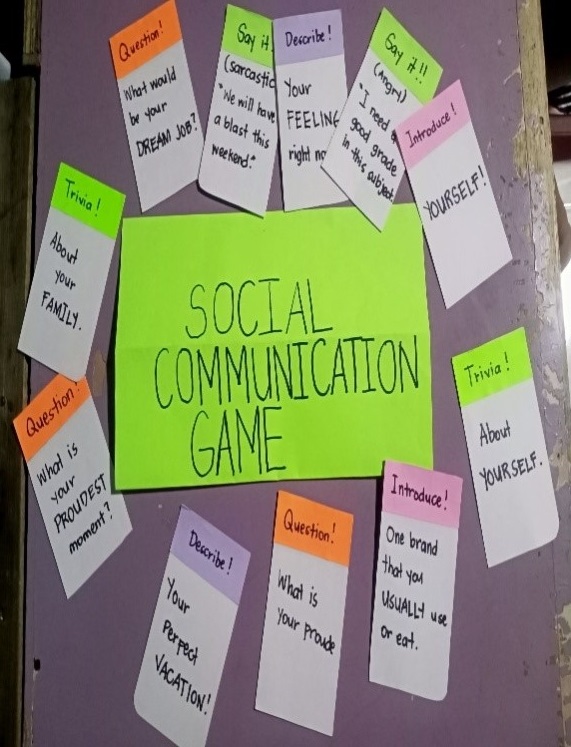 Question!
What would
be your
DREAM JOB?
Say it!
(sarcastic
"We will have
a blast this
weekend."
Describe!
Your
FEELING
right no
Say it!!
(Angry)
"I need a
good grade
in this subject
Introduce!
YOURSELF!
Trivia!
About
your
FAMILY.
SOCIAL
COMMUNICATION
GAME
Trivia!
About
YOURSELF.
Question!
What is
your
PROUDEST
moment?
Describe!
Your
Perfect
VACATION!
Question!
What is
your Proude
Introduce!
One brand
that you
USUALLY use
or eat.